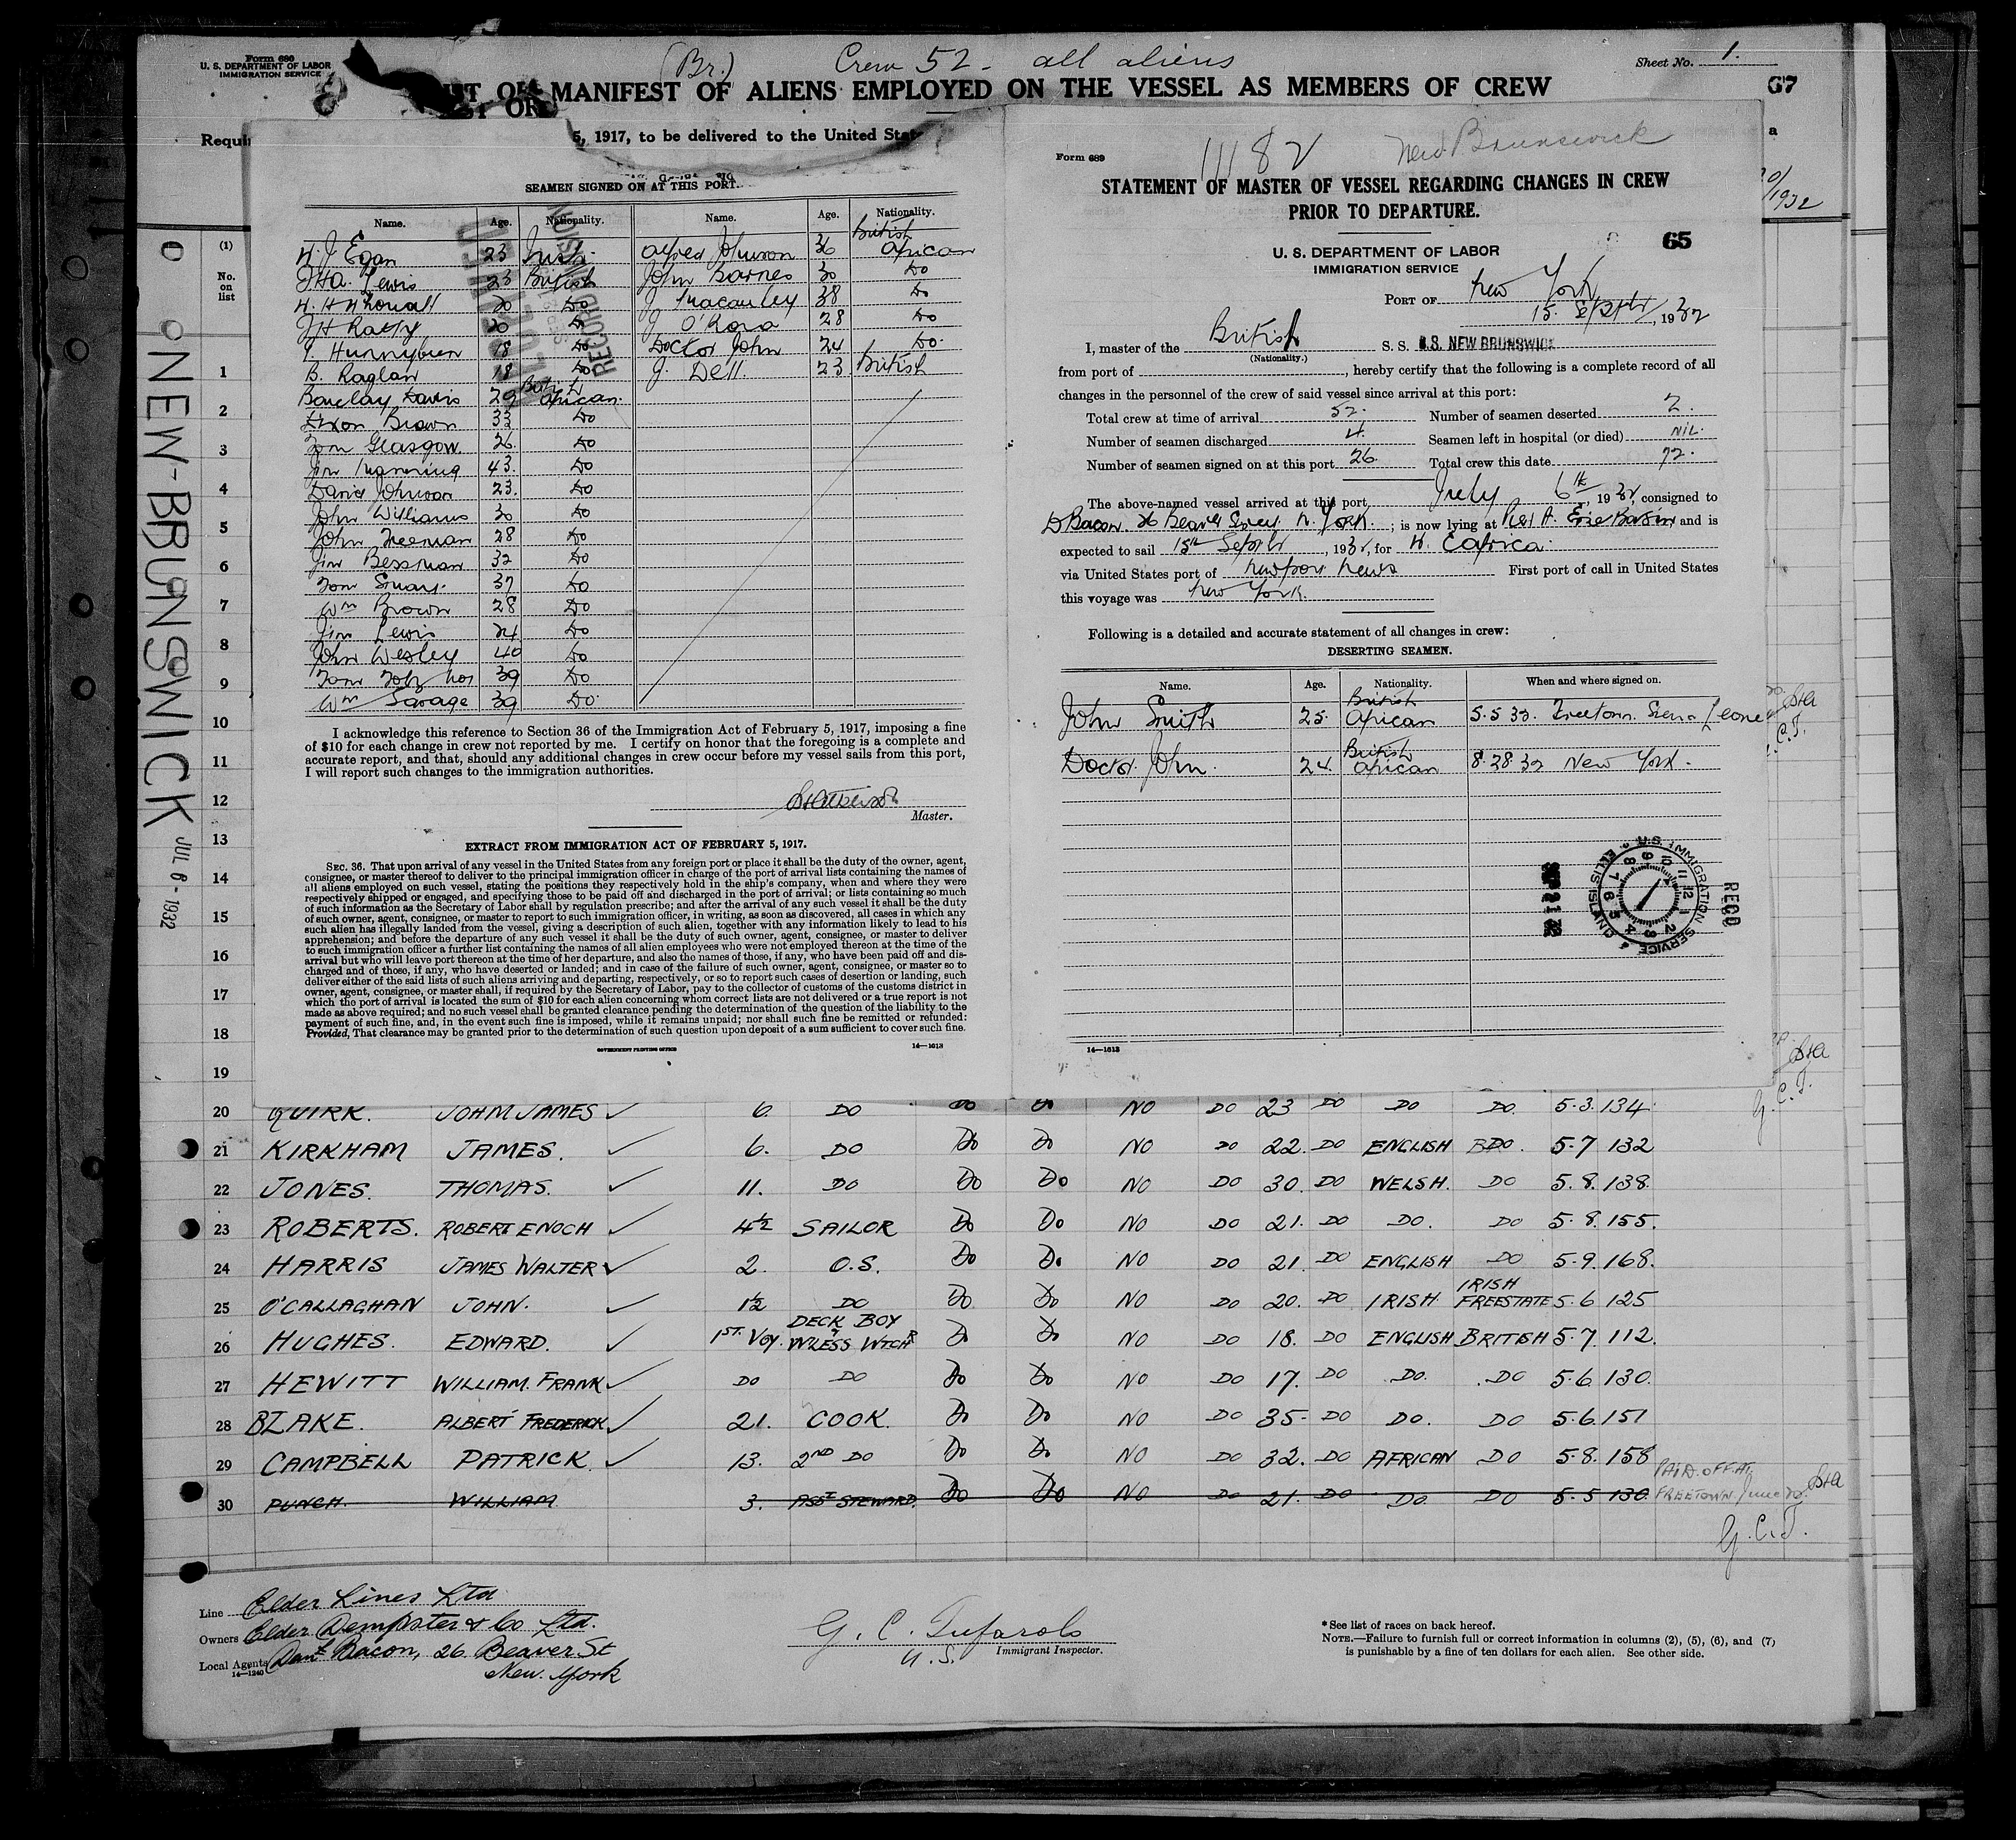 Form 680
U. S. DEPARTMENT OF LABOR
IMMIGRATION SERVICE
(Br.) Crew 52 - all aliens
Sheet No. 1.
OR MANIFEST OF ALIENS EMPLOYED ON THE VESSEL AS MEMBERS OF CREW
67
5, 1917, to be delivered to the United
NEW-BRUNSWICK JUL 6 - 1932
(1)
No. on list
1
2
3
4
5
6
7
8
9
10
11
12
13
14
15
16
17
18
19
SEAMEN SIGNED ON AT THIS PORT.
Name. Age. Nationality. Name. Age. Nationality.
H. J Egan 23 Irish Alfred Johnson 36 British African
Lewis 23 British John Barnes 30 Do
20 Do J. Macauley 38 Do
20 Do J. 28 Do
18 Do Doctor John 24 Do.
B. Raglan 18 Do J. Dell. 23 British
Barclay Davis 29 British African.
Dixon Brown 33 Do
Tom Glasgow. 26. Do
Jim 43. Do
David Johnson 23. Do
John Williams 30 Do
John Freeman 28 Do
Jim Bessman 32 Do
Tom 37 Do
Wm Brown 28 Do
Jim Lewis 24 Do
John Wesley 40 Do
Tom 39 Do
Wm Savage 39 Do.
I acknowledge this reference to Section 36 of the Immigration Act of February 5, 1917, imposing a fine
of $10 for each change in crew not reported by me. I certify on honor that the foregoing is a complete and
accurate report, and that, should any additional changes in crew occur before my vessel sails from this port,
I will report such changes to the immigration authorities.
Master.
EXTRACT FROM IMMIGRATION ACT OF FEBRUARY 5, 1917.
SEC. 36. That upon arrival of any vessel in the United States from any foreign port or place it shall be the duty of the owner, agent,
consignee, or master thereof to deliver to the principal immigration officer in charge of the port of arrival lists containing the names of
all aliens employed on such vessel, stating the positions they respectively hold in the ship's company, when and where they were
respectively shipped or engaged, and specifying those to be paid off and discharged in the port of arrival; or lists containing so much
of such information as the Secretary of Labor shall by regulation prescribe; and after the arrival of any such vessel it shall be the duty
of such owner, agent, consignee, or master to report to such immigration officer, in writing, as soon as discovered, all cases in which any
such alien has illegally landed from the vessel, giving a description of such alien, together with any information likely to lead to his
apprehension; and before the departure of any such vessel it shall be the duty of such owner, agent, consignee, or master to deliver
to such immigration officer a further list containing the names of all alien employees who were not employed thereon at the time of the
arrival but who will leave port thereon at the time of her departure, and also the names of those, if any, who have been paid off and dis-
charged and of those, if any, who have deserted or landed; and in case of the failure of such owner, agent, consignee, or master so to
deliver either of the said lists of such aliens arriving and departing, respectively, or so to report such cases of desertion or landing, such
owner, agent, consignee, or master shall, if required by the Secretary of Labor, pay to the collector of customs of the customs district in
which the port of arrival is located the sum of $10 for each alien concerning whom correct lists are not delivered or a true report is not
made as above required; and no such vessel shall be granted clearance pending the determination of the question of the liability to the
payment of such fine, and, in the event such fine is imposed, while it remains unpaid; nor shall such fine be remitted or refunded:
Provided, That clearance may be granted prior to the determination of such question upon deposit of a sum sufficient to cover such fine.
GOVERNMENT PRINTING OFFICE 14—1613
Form 689
New Brunswick
STATEMENT OF MASTER OF VESSEL REGARDING CHANGES IN CREW
PRIOR TO DEPARTURE.
U. S. DEPARTMENT OF LABOR
IMMIGRATION SERVICE
65
PORT OF New York
15. Septbr, 1932
I, master of the British S. S. S.S. NEW BRUNSWICK
(Nationality.)
from port of , hereby certify that the following is a complete record of all
changes in the personnel of the crew of said vessel since arrival at this port:
Total crew at time of arrival 52. Number of seamen deserted 2.
Number of seamen discharged 4. Seamen left in hospital (or died) NIL.
Number of seamen signed on at this port 26. Total crew this date 72.
The above-named vessel arrived at this port July 6th, 1932, consigned to
D Bacon 26 Beaver Street N. York.; is now lying at Pier A. Erie Basin and is
expected to sail 15th Septbr, 1932, for W. Africa.
via United States port of Newport News First port of call in United States
this voyage was New York.
Following is a detailed and accurate statement of all changes in crew:
DESERTING SEAMEN.
Name. Age. Nationality. When and where signed on.
John Smith 25. British African 5.5.32. Freetown Sierra Leone
Doctor John. 24. British African 8.28.32 New York.
U.S. IMMIGRATION SERVICE ELLIS ISLAND
RECD
14—1613
20 QUIRK. JOHN JAMES ✓ 6. DO Do Do NO DO 23 DO DO DO. 5.3. 134.
21 KIRKHAM JAMES. ✓ 6. DO Do Do NO DO 22. DO ENGLISH DO. 5.7 132
22 JONES. THOMAS. ✓ 11. DO Do Do NO DO 30. DO WELSH. DO 5.8. 138.
23 ROBERTS. ROBERT ENOCH ✓ 4½ SAILOR Do Do NO DO 21. DO DO. DO 5.8. 155.
24 HARRIS JAMES WALTER ✓ 2. O.S. Do Do NO DO 21. DO ENGLISH DO 5.9. 168.
25 O'CALLAGHAN JOHN. ✓ 1½ DO Do Do NO DO 20. DO IRISH IRISH FREESTATE 5.6 125
26 HUGHES. EDWARD. ✓ 1ST. VOY. DECK BOY & W/LESS WTCHR Do Do NO DO 18. DO ENGLISH BRITISH 5.7. 112.
27 HEWITT WILLIAM. FRANK ✓ DO DO Do Do NO DO 17. DO DO. DO 5.6. 130.
28 BLAKE. ALBERT FREDERICK ✓ 21. COOK. Do Do NO DO 35. DO DO. DO 5.6. 151
29 CAMPBELL PATRICK. ✓ 13. 2ND DO Do Do NO DO 32. DO AFRICAN DO 5.8. 158
30 PUNCH. WILLIAM 3. ASST STEWARD. Do Do NO DO 21. DO DO DO 5.5 130. PAID OFF AT FREETOWN June
G.C.T.
Line Elder Lines Ltd
Owners Elder Dempster & Co Ltd.
Local Agents Danl Bacon, 26 Beaver St
14—1240 New York
G. C. Tufarolo
U.S. Immigrant Inspector.
* See list of races on back hereof.
NOTE.—Failure to furnish full or correct information in columns (2), (5), (6), and (7)
is punishable by a fine of ten dollars for each alien. See other side.